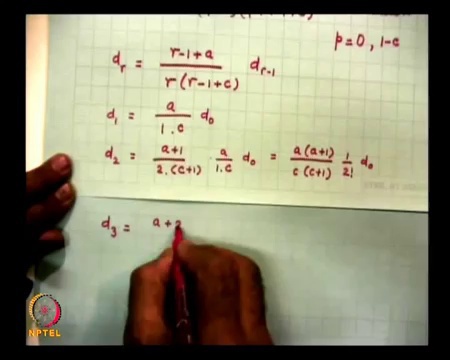 p=0, 1-c
d_r = \frac{r-1+a}{r(r-1+c)} d_{r-1}
d_1 = \frac{a}{1.c} d_0
d_2 = \frac{a+1}{2.(c+1)} . \frac{a}{1.c} d_0 = \frac{a(a+1)}{c(c+1)} \frac{1}{2!} d_0
d_3 = a+2
NPTEL